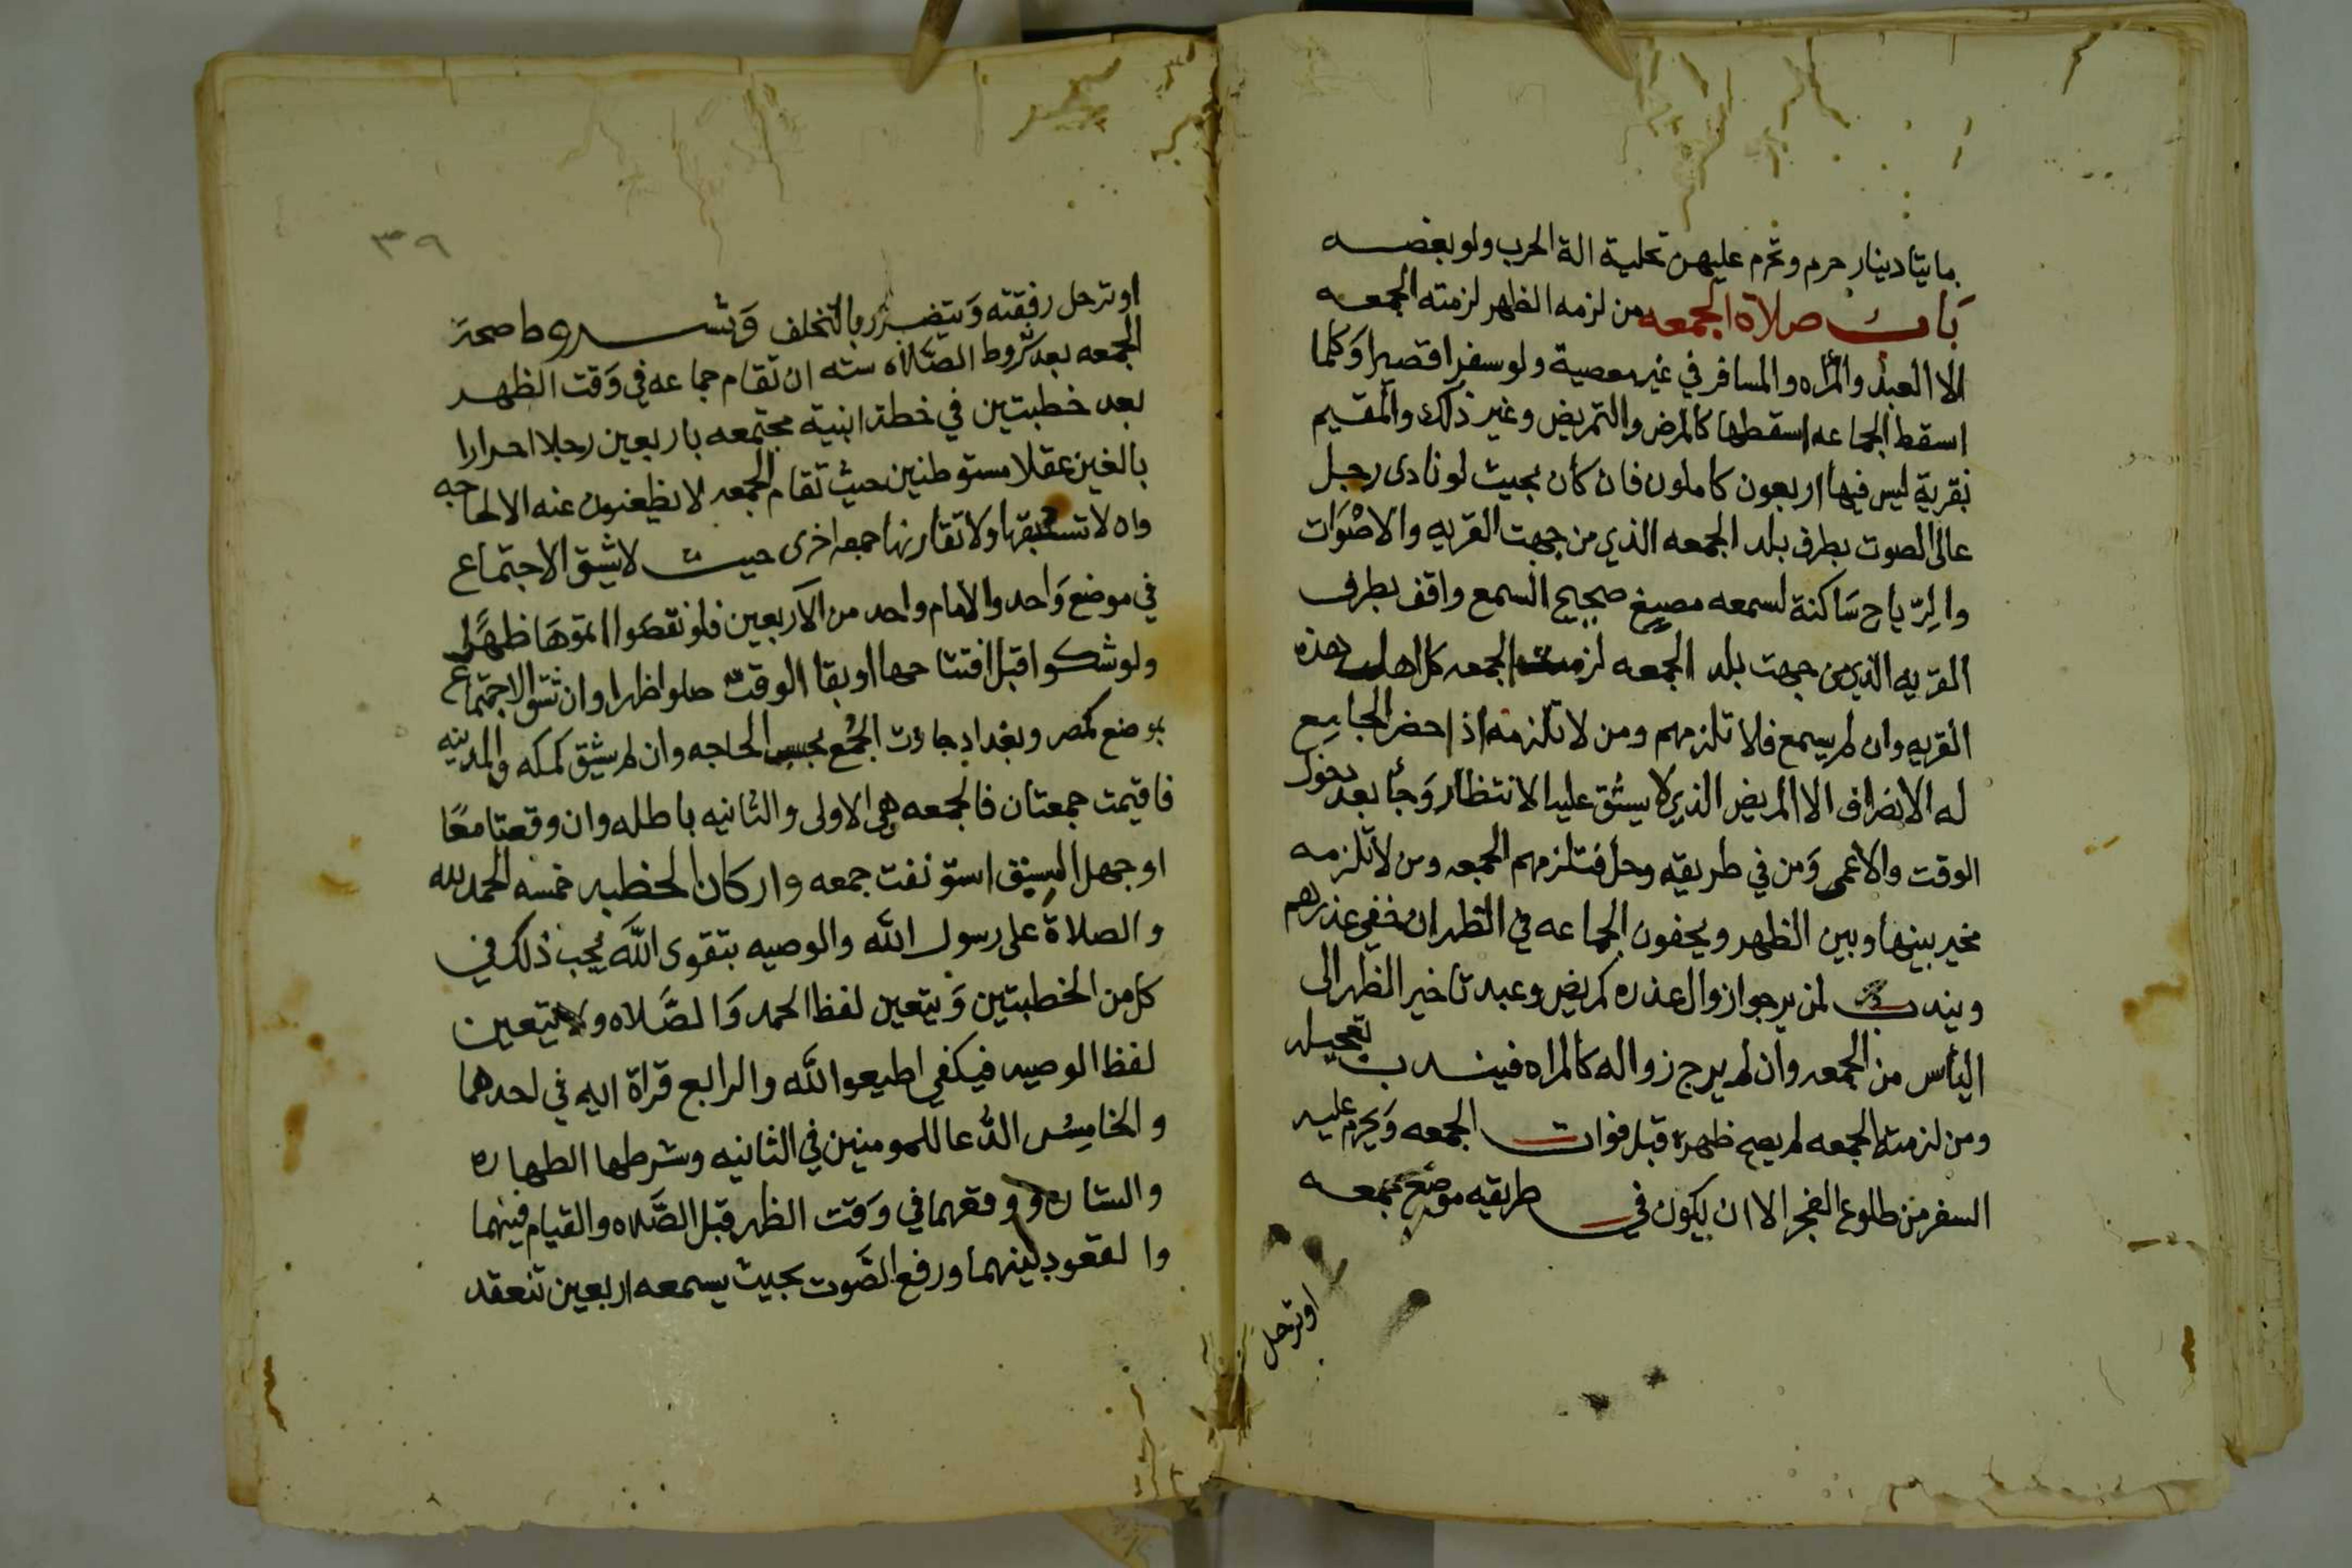 مايتا دينار حرم وتحرم عليهن تحلية الة الحرب ولو بفضه
بَابُ صلاة الجمعه من لزمه الظهر لزمته الجمعه
الا العبد والمراه والمسافر في غير معصية ولو سفرا قصيرا وَكلما
اسقط الجماعه اسقطها كالمرض والتمريض وغير ذلك والمقيم
بقرية ليس فيها اربعون كاملون فان كان بحيث لو نادى رجل
عالى الصوت بطرف بلد الجمعه الذي من جهت القريه والاصْوَات
والرّياح سَاكنة لسمعه مصيغ صحيح السمع واقف بطرف
القريه الذي من جهت بلد الجمعه لزمت الجمعه كل اهل هذه
القريه وان لم يسمع فلا تلزمهم ومن لا تلزمه اذا حضر الجامع
له الانصراف الا المريض الذي لا يشق عليه الانتظار وَجأ بعد دخول
الوقت والاعمى وَمن في طريقه وحل فتلزمهم الجمعه ومن لا تلزمه
مخير بينها وبين الظهر ويخفون الجماعه في الظهر ان خفي عذرهم
ويندب لمن يرجوا زوال عذره كمريض وعبد تاخير الظهر الى
اليأس من الجمعه وان لم يرج زواله كالمراه فيندب تعجيله
ومن لزمته الجمعه لم يصح ظهره قبل فوات الجمعه وَيحرم عليه
السفر من طلوع الفجر الا ان يكون في طريقه موضع جمعه
اوترحل
٣٩
اوترحل رفقته وَيتضرر بالتخلف وَشروط صحة
الجمعه بعد شروط الصَّلاه سته ان تقام جماعه في وَقت الظهر
بعد خطبتين في خطة ابنية مجتمعه باربعين رجلا احرارا
بالغين عقلا مستوطنين حيث تقام الجمعه لا يظعنون عنه الا لحاجه
وان لا تسبقها ولا تقارنها جمعه اخرى حيث لا يشق الاجتماع
في موضع وَاحد والامام واحد من الاربعين فلو نقصوا اتموهَا ظهرًا
ولو شكوا قبل افتتاحها او بقا الوقت صلوا ظهرا وان شق الاجتماع
بموضع كمصر وبغداد جازت الجُمع بحسب الحاجه وان لم يشق كمكه والمدينه
فاقيمت جمعتان فالجمعه هي الاولى والثانيه باطله وان وقعتا معًا
او جهل السبق استؤنفت جمعه واركان الخطبه خمسه الحمد لله
والصلاة على رسول الله والوصيه بتقوى اللَّه يجب ذلك في
كل من الخطبتين وَيتعين لفظ الحمد وَالصَّلاه ولا يتعين
لفظ الوصيه فيكفي اطيعوا اللَّه والرابع قراة ايه في احدهما
والخامِسُ الدُّعا للمومنين في الثانيه وشرطها الطهاره
والستاره ووقعهما في وَقت الظهر قبل الصَّلاه والقيام فيهما
والقعود بينهما ورفع الصَّوت بحيث يسمعه اربعين تنعقد